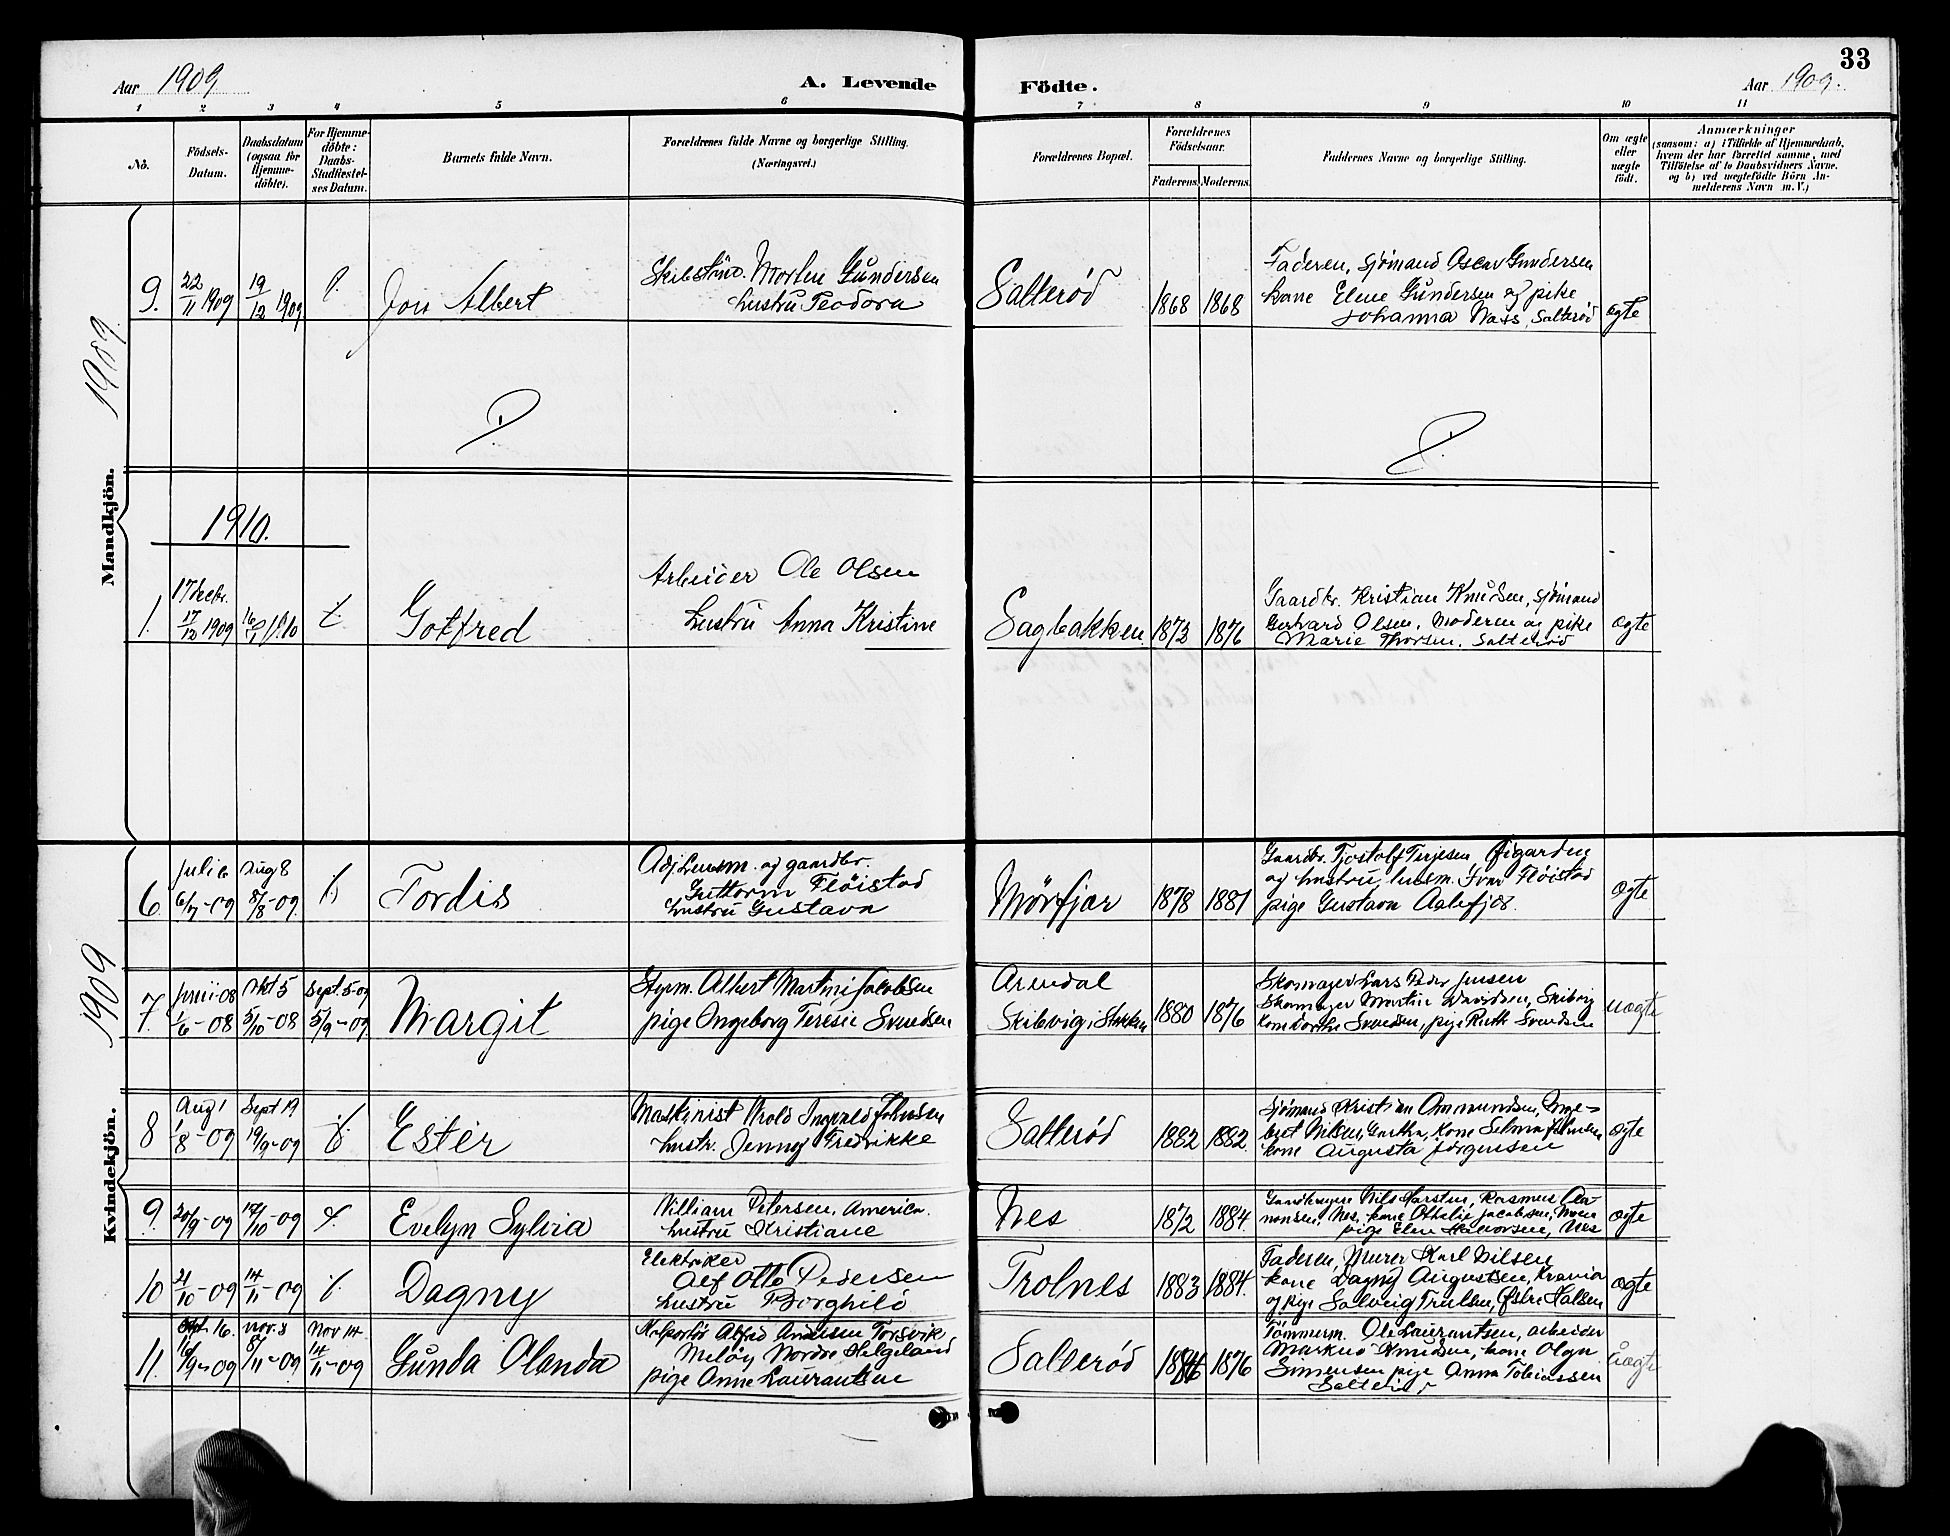 33
Aar 1909 A. Levende Födte. Aar 1909.
1 2 3 4 5 6 7 8 9 10 11
No.
Födsels-
Datum.
Daabsdatum
(ogsaa for
Hjemme-
döbte).
For Hjemme-
döbte:
Daabs-
Stadfæstel-
ses Datum.
Barnets fulde Navn.
Forældrenes fulde Navne og borgerlige Stilling.
(Næringsvei.)
Forældrenes Bopæl.
Forældrenes
Födselsaar.
Faderens. Moderens.
Faddernes Navne og borgerlige Stilling.
Om ægte
eller
uægte
født.
Anmærkninger
(saasom: a) i Tilfælde af Hjemmedaab,
hvem der har forrettet samme, med
Tilföielse af to Daabsvidners Navne.
og b) ved uægtefödte Börn An-
melderens Navn m. V.)
Mandkjön.
1909
9. 22/11 1909 19/12 1909 Jon Albert
Morten Gundersen
hustru Teodora
Salterød 1868 1868
Faderen, sjømand Oscar Gundersen
kone Elene Gundersen og pike
Johanna Næss, Salterød
ægte
1910.
1. 17 decbr.
17/12 1909
Gotfred
Arbeider Ole Olsen
hustru Anna Kristine
Sagbakken 1873 1876
Gaardbr. Kristian Knudsen, sjømand
Gerhard Olsen, Moderen og pike
Marie Thorsen, Salterød
ægte
Kvindekjön.
1909
6. Juli 6 Aug 8
6/7-09 8/8-09.
Tordis
Adj. Lensm. og gaardbr.
Guttorm Fløistad
hustru Gustava
Mörfjær 1878 1881
Gaardbr. Tjostolf Terjesen,
og hustru, lensm. Ivar Fløistad
pige Gustava Aalefjær.
ægte
7. Juni-08 Okt 5 Sept. 5-09
1/6-08 5/10-08 5/9-09
Margit
Styrm. Albert Martini Jacobsen
pige Ingeborg Teresie Svendsen
Arendal
Skilvig i Stokken 1880 1876
Skomager Lars Peder Jensen
Skomager Martin Davidsen, Skibvig
Kone Dorthe Svendsen, pige Ruth Svendsen
uægte
8 Aug 1 Sept 19
1/8-09 19/9-09
Ester
Maskinist Arold Ingvald Johnsen
hustr. Jenny Fredrikke
Salterød 1882 1882.
Sjømand Kristian Ommundsen, Inge-
bret Nilsen, Gartha, Kone Selma Johnsen
kone Augusta Jörgensen
ægte
9. 20/9-09
Evelyn Sylvia
William Petersen, America.
hustru Kristiane
Nes 1872 1884.
Nils Karsten, Rasmus Aa-
nonsen, Nes, kone Othelie Jacobsen,
pige Elen Halvorsen, Nes
ægte
10 21/10-09 14/11-09
Dagny
Elektriker
Alf Otto Pedersen
hustru Borghild
Trolnes 1883 1884.
Faderen, Murer Karl Nilsen
kone Dagny Augustsen, Krania
og pige Solveig Trulsen, Østre Halsen
ægte
11. 16. Nov. 8 Nov 14.
16/9-09 8/11-09 14/11-09
Gunda Olanda
Kolportør Alfred Andersen Torsvik
Meløy Nordre Helgeland
pige Anne Laurantsen
Salterød 1876
Tömmerm. Ole Laurantsen, arbeider
Markus Knudsen, kone Olga
Simensen pige Anna Tobiassen
Salterød
uægte